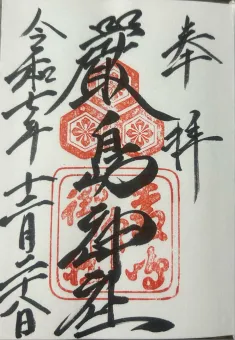 奉拝
嚴島神社
令和七年十二月二十八日